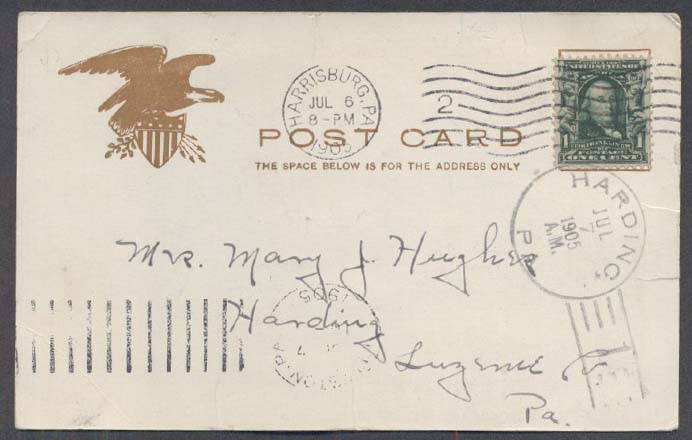 HARRISBURG, PA.
JUL 6
8-PM
1905
2
UNITED STATES OF
1 1
POSTAGE
ONE CENT
POST CARD
THE SPACE BELOW IS FOR THE ADDRESS ONLY
HARDING,
JUL
7
1905
A.M.
PA.
Mrs. Mary J Hughes
1905
Harding
7
Luzerne Co.
Pa.
1